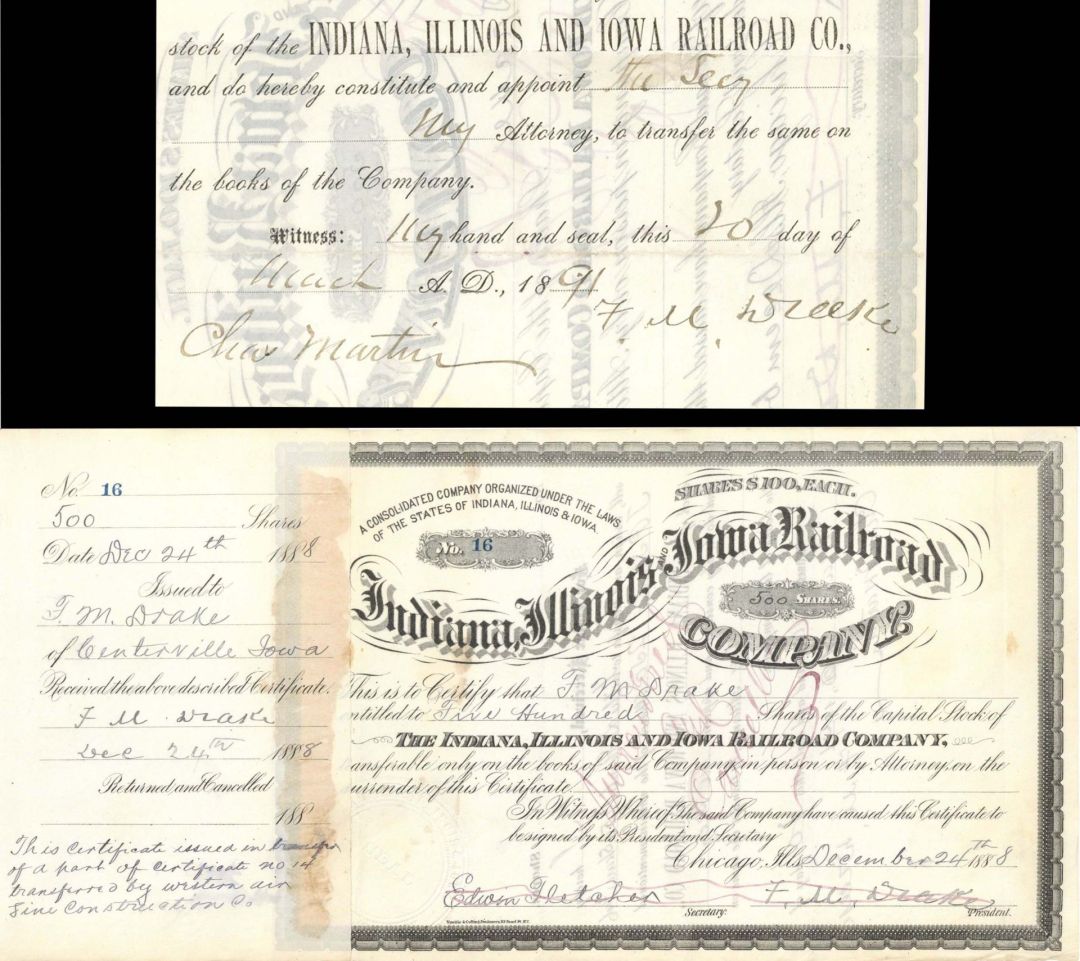 stock of the INDIANA, ILLINOIS AND IOWA RAILROAD CO.,
and do hereby constitute and appoint the Secy
My Attorney, to transfer the same on
the books of the Company.
Witness: My hand and seal, this 20 day of
March A. D., 1891
F M Drake
Chas Martin
No. 16
500 Shares
Date Dec 24th 1888
Issued to
F. M. Drake
of Centerville Iowa
Received the above described Certificate.
F M Drake
Dec 24th 1888
Returned and Cancelled
188
This certificate issued in transfer
of a part of certificate no 14
transferred by western air
Line Construction Co
A CONSOLIDATED COMPANY ORGANIZED UNDER THE LAWS
OF THE STATES OF INDIANA, ILLINOIS & IOWA.
SHARES $100, EACH.
No. 16
Indiana, Illinois AND Iowa Railroad
500 SHARES.
COMPANY.
This is to Certify that F M Drake
entitled to Five Hundred Shares of the Capital Stock of
THE INDIANA, ILLINOIS AND IOWA RAILROAD COMPANY,
ansferable only on the books of said Company in person or by Attorney, on the
urrender of this Certificate
In Witness Whereof, The said Company have caused this Certificate to
be signed by its President and Secretary
Chicago, Ills. December 24th 1888
Edwin Fletcher F. M. Drake
Secretary. President.